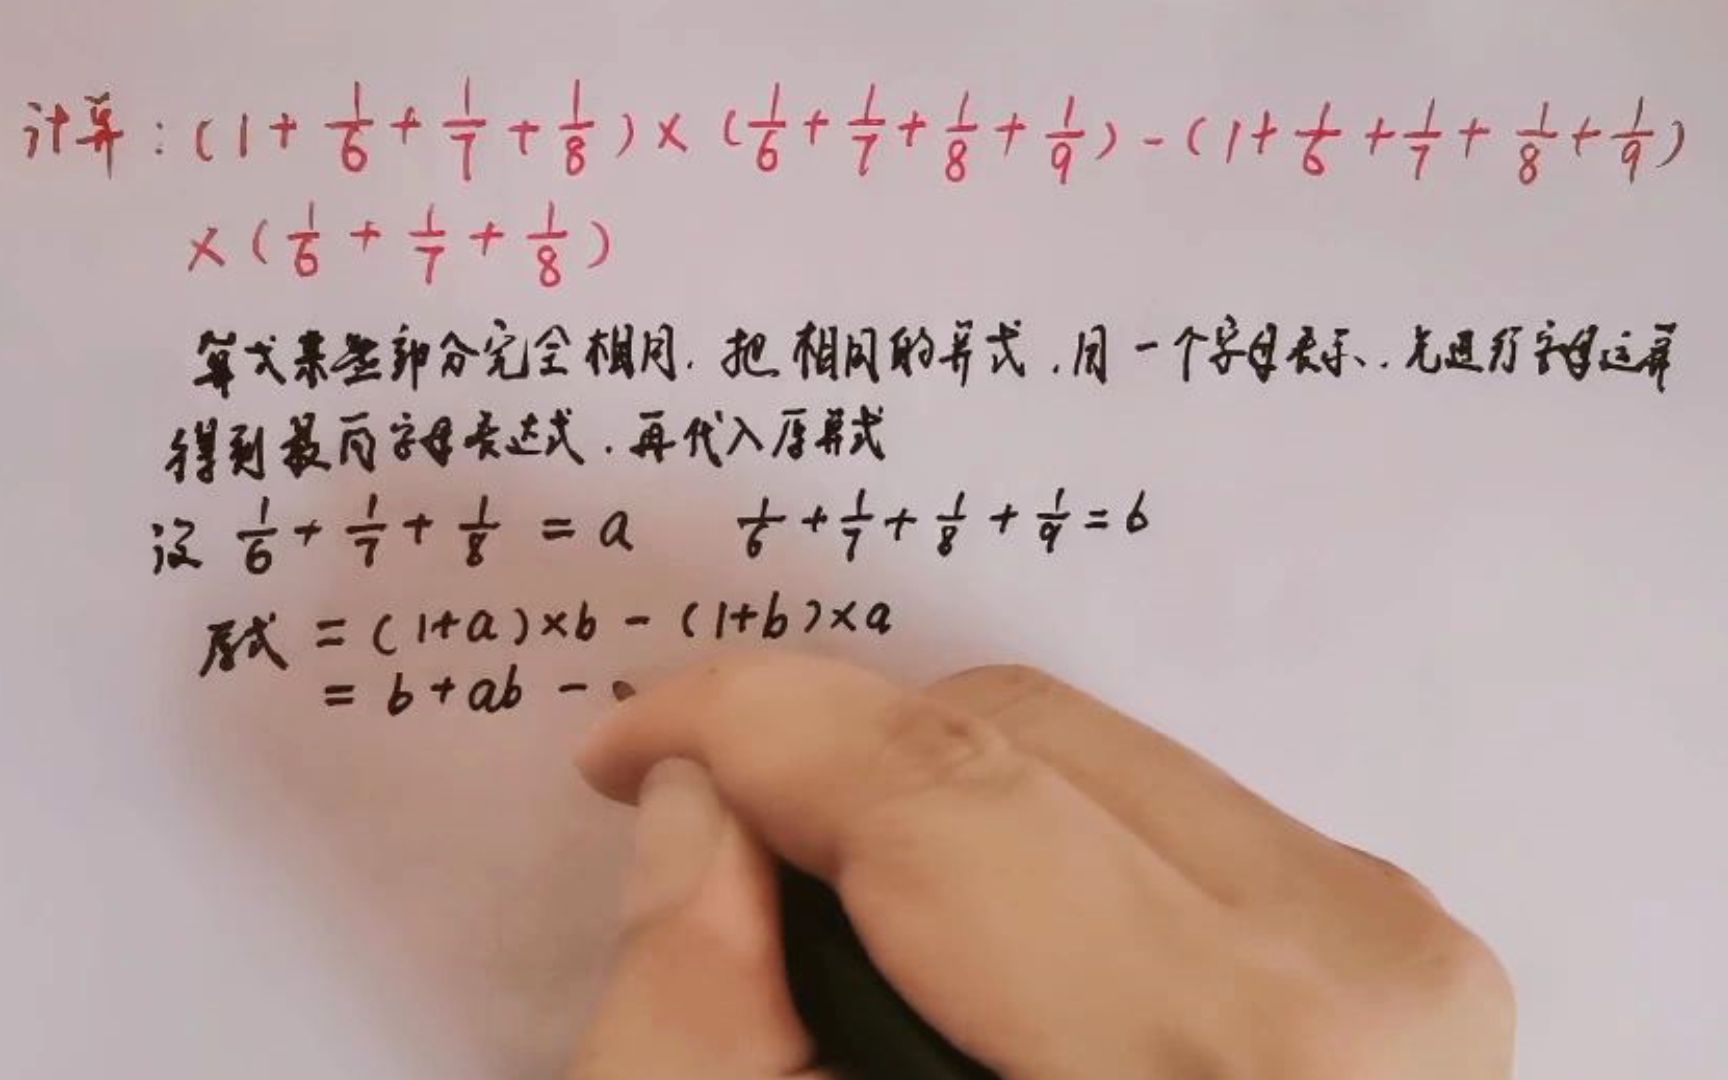 计算：(1+1/6+1/7+1/8)×(1/6+1/7+1/8+1/9)-(1+1/6+1/7+1/8+1/9)
×(1/6+1/7+1/8)
算式某些部分完全相同.把相同的算式.用一个字母表示.先进行字母运算
得到最简字母表达式.再代入原算式
设 1/6+1/7+1/8=a 1/6+1/7+1/8+1/9=b
原式=(1+a)×b-(1+b)×a
=b+ab-